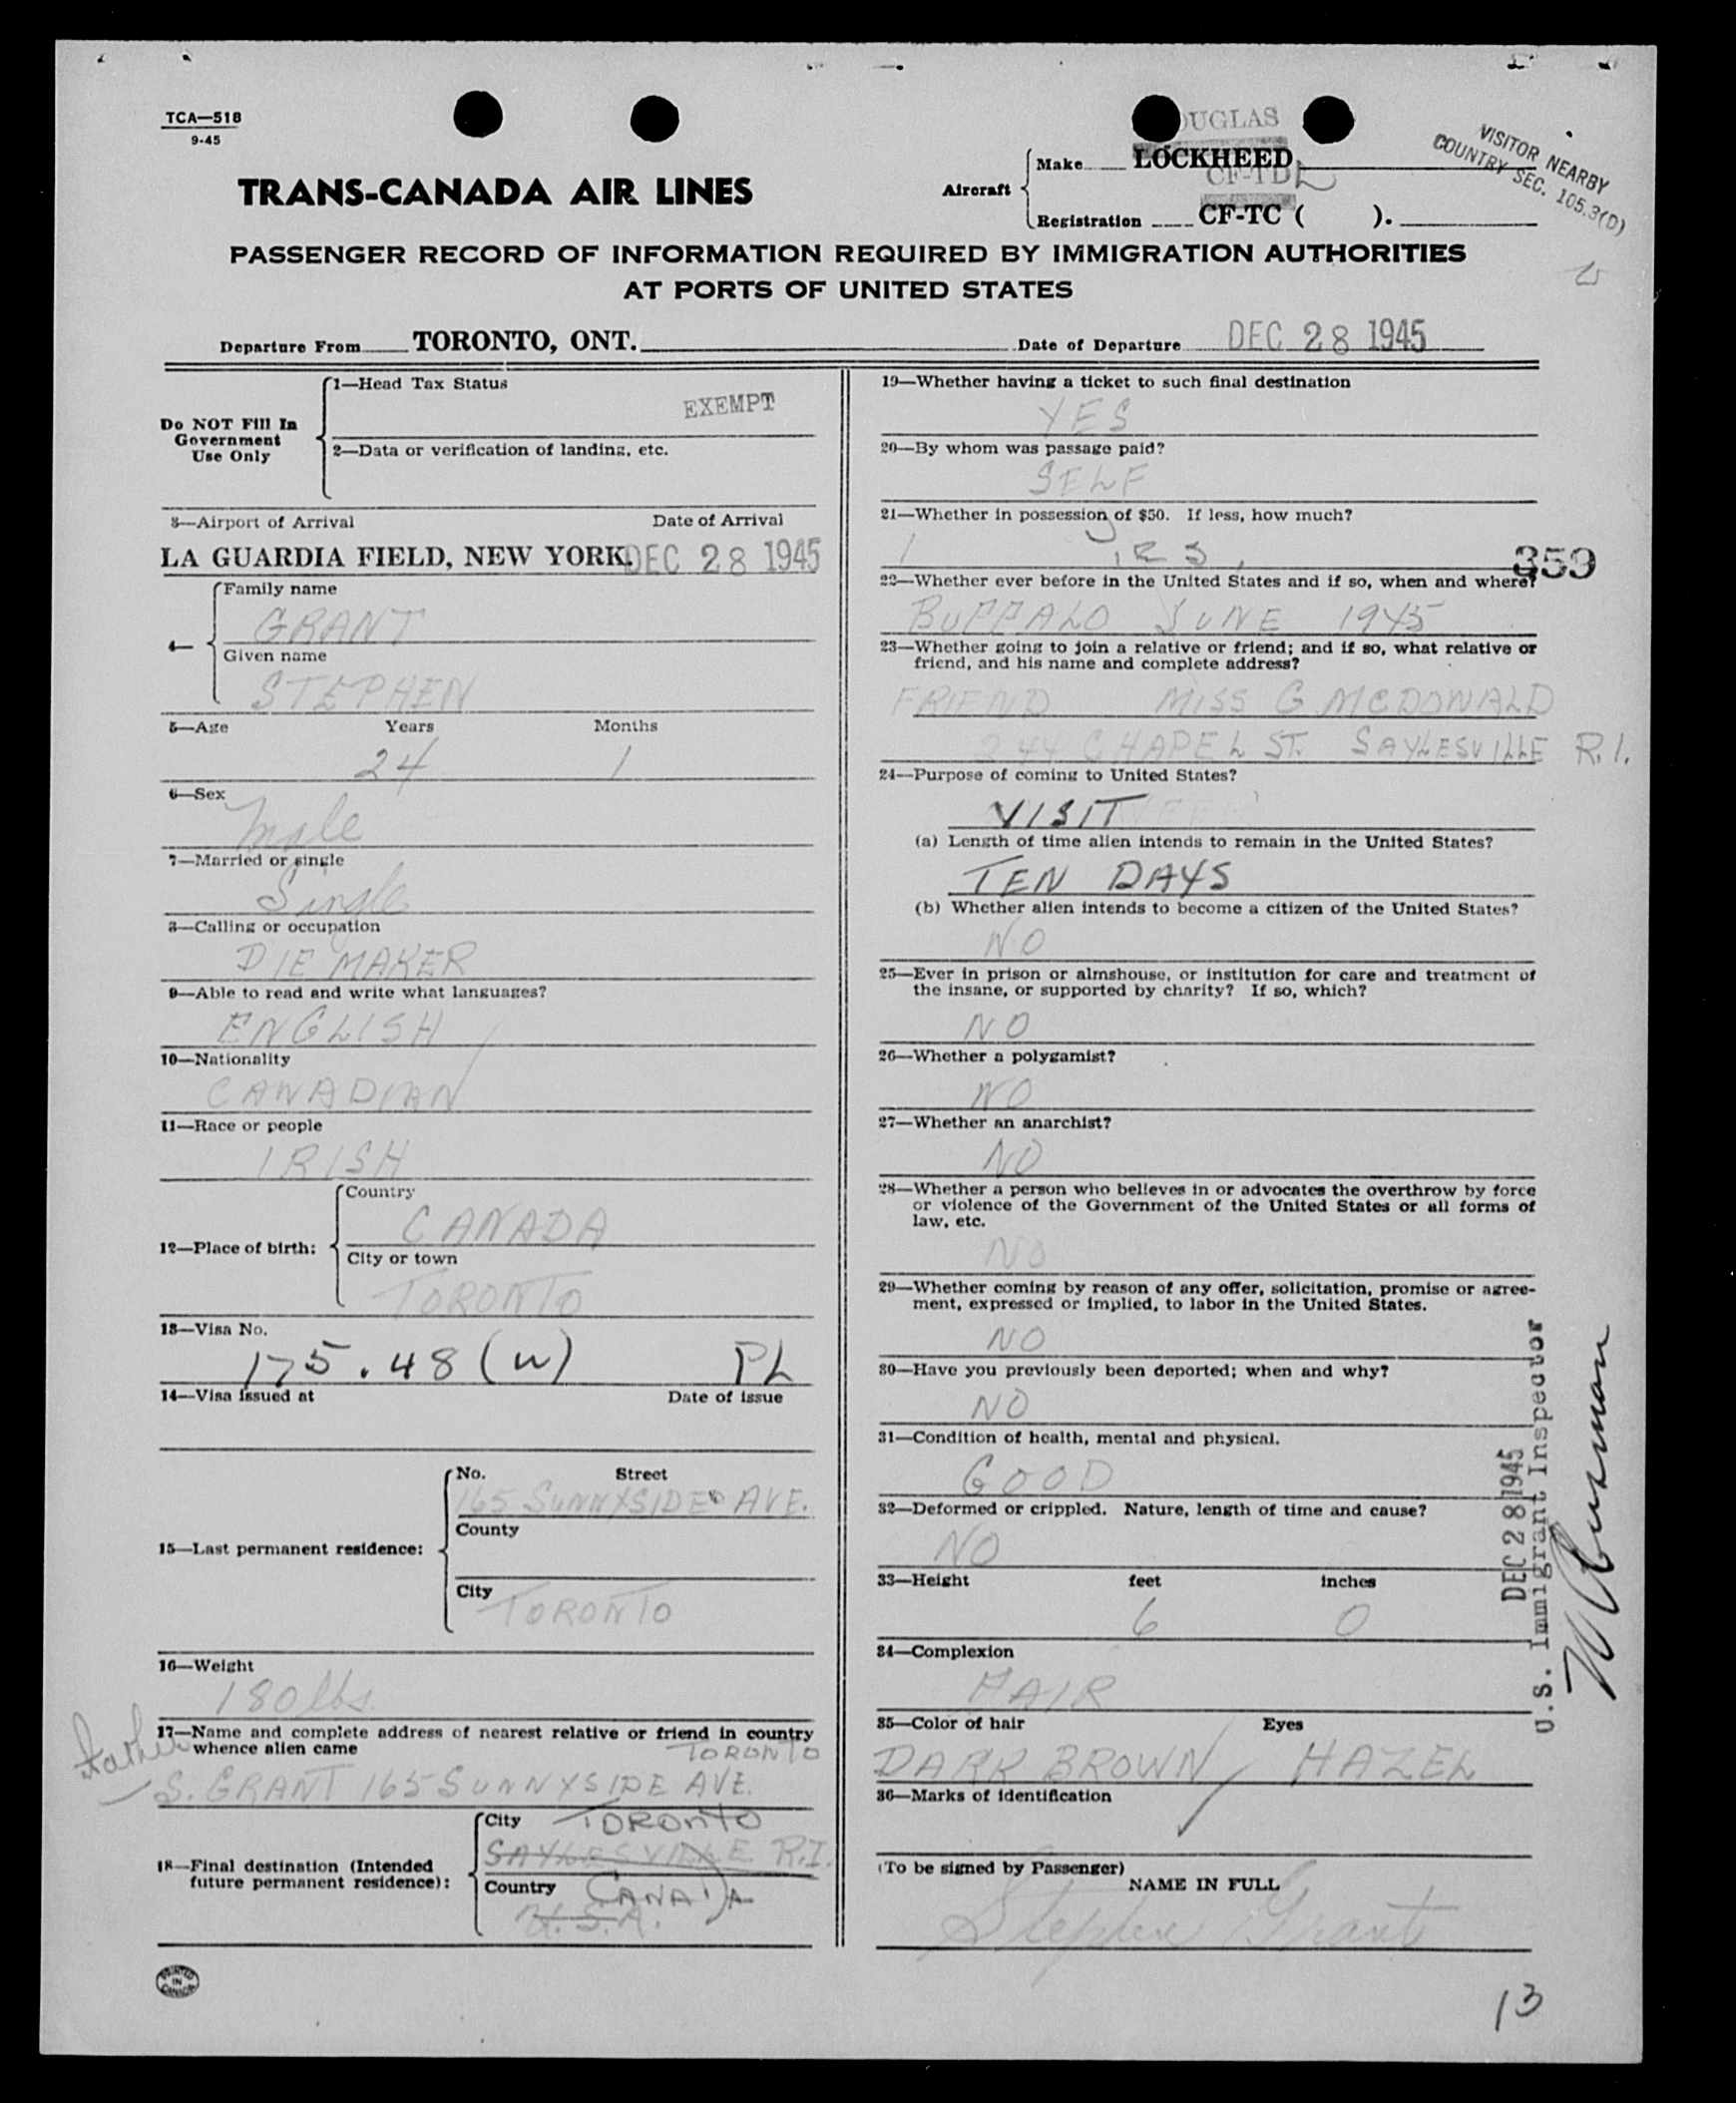 TCA—518
9-45
DOUGLAS
VISITOR NEARBY
COUNTRY SEC. 105.3(D)
TRANS-CANADA AIR LINES
Aircraft
Make LOCKHEED
CF-TD
Registration CF-TC ( ).
PASSENGER RECORD OF INFORMATION REQUIRED BY IMMIGRATION AUTHORITIES
AT PORTS OF UNITED STATES
Departure From TORONTO, ONT. Date of Departure DEC 28 1945
Do NOT Fill In
Government
Use Only
1—Head Tax Status
EXEMPT
2—Data or verification of landing, etc.
3—Airport of Arrival Date of Arrival
LA GUARDIA FIELD, NEW YORK. DEC 28 1945
4—
Family name
GRANT
Given name
STEPHEN
5—Age Years Months
24 1
6—Sex
Male
7—Married or single
Single
8—Calling or occupation
DIE MAKER
9—Able to read and write what languages?
ENGLISH
10—Nationality
CANADIAN
11—Race or people
IRISH
12—Place of birth:
Country
CANADA
City or town
TORONTO
13—Visa No.
175.48 (w) PL
14—Visa issued at Date of issue
15—Last permanent residence:
No. Street
165 SUNNYSIDE AVE.
County
City
TORONTO
16—Weight
180 lbs.
Father
17—Name and complete address of nearest relative or friend in country
whence alien came
TORONTO
S. GRANT 165 SUNNYSIDE AVE.
18—Final destination (Intended
future permanent residence):
City TORONTO
SAYLESVILLE R.I.
Country CANADA
U.S.A.
19—Whether having a ticket to such final destination
YES
20—By whom was passage paid?
SELF
21—Whether in possession of $50. If less, how much?
359
22—Whether ever before in the United States and if so, when and where?
BUFFALO JUNE 1945
23—Whether going to join a relative or friend; and if so, what relative or
friend, and his name and complete address?
FRIEND MISS G MCDONALD
244 CHAPEL ST. SAYLESVILLE R.I.
24—Purpose of coming to United States?
VISIT
(a) Length of time alien intends to remain in the United States?
TEN DAYS
(b) Whether alien intends to become a citizen of the United States?
NO
25—Ever in prison or almshouse, or institution for care and treatment of
the insane, or supported by charity? If so, which?
NO
26—Whether a polygamist?
NO
27—Whether an anarchist?
NO
28—Whether a person who believes in or advocates the overthrow by force
or violence of the Government of the United States or all forms of
law, etc.
NO
29—Whether coming by reason of any offer, solicitation, promise or agree-
ment, expressed or implied, to labor in the United States.
NO
30—Have you previously been deported; when and why?
NO
31—Condition of health, mental and physical.
GOOD
32—Deformed or crippled. Nature, length of time and cause?
NO
33—Height feet inches
6 0
34—Complexion
FAIR
35—Color of hair Eyes
DARK BROWN HAZEL
36—Marks of identification
(To be signed by Passenger)
NAME IN FULL
Stephen Grant
DEC 28 1945
U.S. Immigrant Inspector
PRINTED
IN
CANADA
13